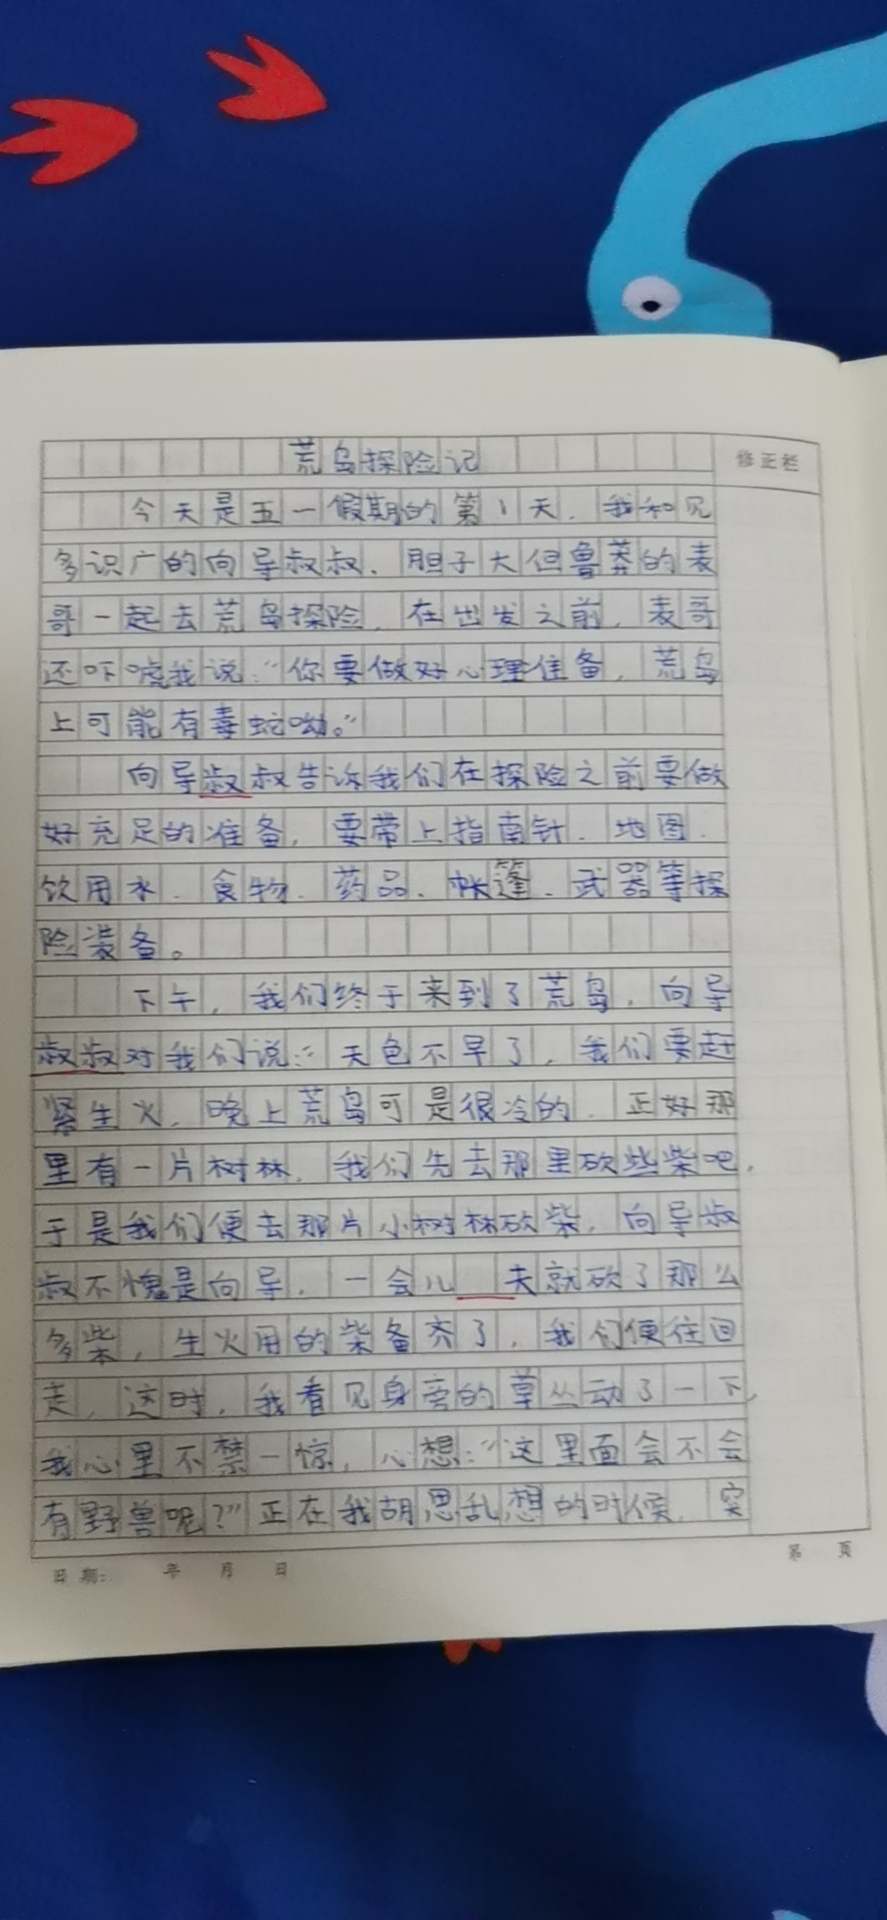 荒岛探险记
修正栏
今天是五一假期的第1天，我和见
多识广的向导叔叔、胆子大但鲁莽的表
哥一起去荒岛探险，在出发之前，表哥
还吓唬我说：“你要做好心理准备，荒岛
上可能有毒蛇呦。”
向导叔叔告诉我们在探险之前要做
好充足的准备，要带上指南针、地图、
饮用水、食物、药品、帐篷、武器等探
险装备。
下午，我们终于来到了荒岛，向导
叔叔对我们说：“天色不早了，我们要赶
紧生火，晚上荒岛可是很冷的，正好那
里有一片树林，我们先去那里砍些柴吧，
于是我们便去那片小树林砍柴，向导叔
叔不愧是向导，一会儿 夫就砍了那么
多柴，生火用的柴备齐了，我们便往回
走，这时，我看见身旁的草丛动了一下，
我心里不禁一惊，心想：“这里面会不会
有野兽呢？”正在我胡思乱想的时候，突
日期： 年 月 日
第 页